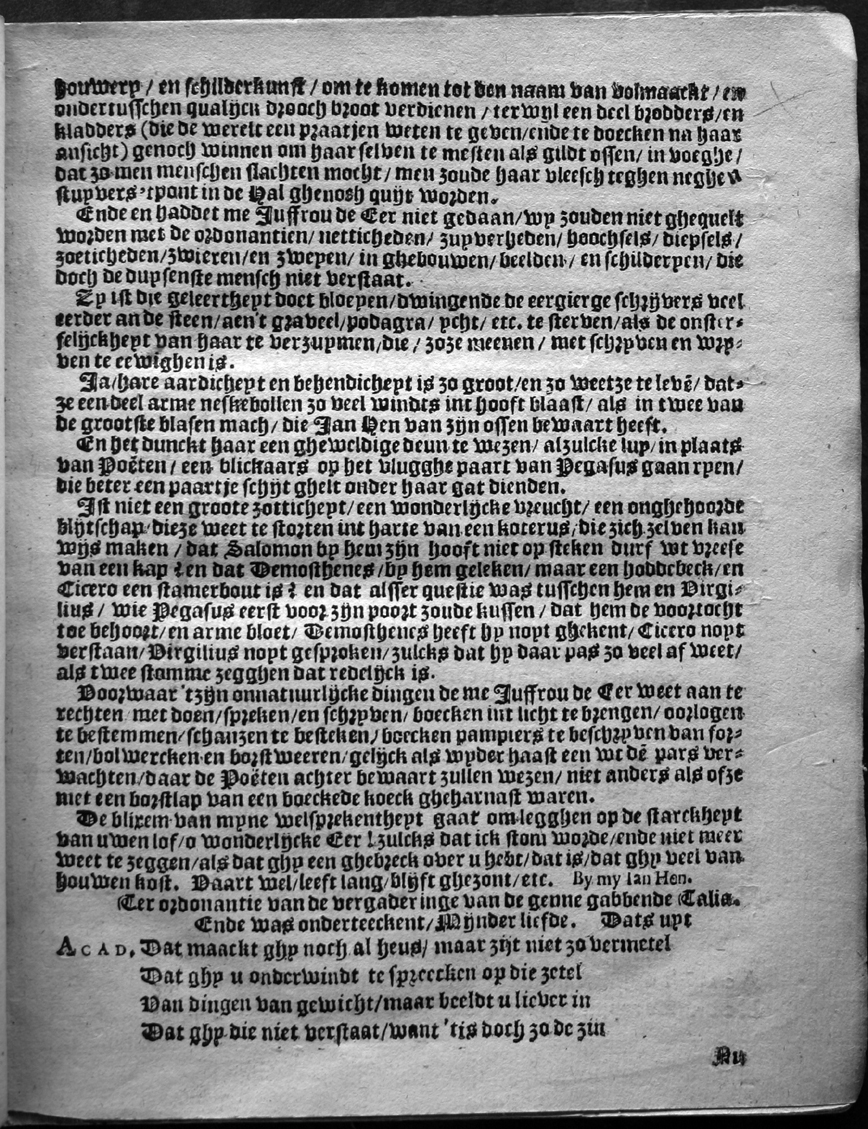 bouwery / en schilderkunst / om te komen tot den naam van volmaackt / en
ondertusschen qualijck drooch broot verdienen / terwyl een deel brodders/en
kladders (die de werelt een praatjen weten te geven/ende te doecken na haar
ansicht) genoch winnen om haar selven te mesten als gildt ossen/ in voeghe/
dat zo men menschen slachten mocht / men zoude haar vleesch teghen neghen
stuyvers 'tpont in de Hal ghenosh quijt worden.
Ende en haddet me Juffrou de Eer niet gedaan/wy zouden niet ghequelt
worden met de ordonantien/ netticheden/ zuyverheden/ hoochsels/ diepsels/
zoeticheden/zwieren/en zweyen/ in ghebouwen/beelden/ en schilderyen/ die
doch de duysenste mensch niet verstaat.
Zy ist die geleertheyt doet bloeyen/dwingende de eergierge schrijvers veel
eerder an de steen/aen't graveel/podagra/ ycht/ etc. te sterven/als de onster-
felijckheyt van haar te verzuymen/die / zoze meenen / met schryven en wry-
ven te eewighen is.
Ja/hare aardicheyt en behendicheyt is zo groot/en zo weetze te levē/ dat-
ze een deel arme neskebollen zo veel windts int hooft blaast/ als in twee van
de grootste blasen mach/ die Jan Hen van zijn ossen bewaart heeft.
En het dunckt haar een gheweldige deun te wezen/ alzulcke luy/in plaats
van Poëten / een blickaars op het vlugghe paart van Pegasus gaan ryen/
die beter een paartje schijt ghelt onder haar gat dienden.
Ist niet een groote zotticheyt/een wonderlijcke vreucht/ een onghehoorde
blijtschap dieze weet te storten int harte van een koterus/die zich zelven kan
wijs maken / dat Salomon by hem zijn hooft niet op steken durf wt vreese
van een kap? en dat Demosthenes/by hem geleken/ maar een hoddebeck/en
Cicero een stamerbout is? en dat alsser questie was tusschen hem en Virgi-
lius / wie Pegasus eerst voor zijn poort zoude kussen / dat hem de voortocht
toe behoort/en arme bloet/ Demosthenes heeft hy noyt ghekent/ Cicero noyt
verstaan/Virgilius noyt gesproken/zulcks dat hy daar pas zo veel af weet/
als twee stomme zegghen dat redelijck is.
Voorwaar 'tzijn onnatuurlijcke dingen de me Juffrou de Eer weet aan te
rechten met doen/spreken/en schryven/ boecken int licht te brengen/ oorlogen
te bestemmen/schanzen te besteken/ boecken pampiers te beschryven van for-
ten/bolwercken en borstweeren/gelijck als wyder haast een wt dē pars ver-
wachten/daar de Poëten achter bewaart zullen wezen/ niet anders als ofze
met een borstlap van een boeckede koeck gheharnast waren.
De blixem van myne welsprekentheyt gaat om legghen op de starckheyt
van uwen lof/o wonderlijcke Eer! zulcks dat ick stom worde/ende niet meer
weet te zeggen/als dat ghy een ghebreck over u hebt/dat is/dat ghy veel van
houwen kost. Vaart wel/leeft lang/blijft ghezont/etc. By my Ian Hen.
Ter ordonantie van de vergaderinge van de genne gabbende Talia.
Ende was onderteeckent/Mijnder liefde. Dats uyt
ACAD. Dat maackt ghy noch al heus/ maar zijt niet zo vermetel
Dat ghy u onderwindt te spreecken op die zetel
Van dingen van gewicht/maar beeldt u liever in
Dat ghy die niet verstaat/want 'tis doch zo de zin
Nu